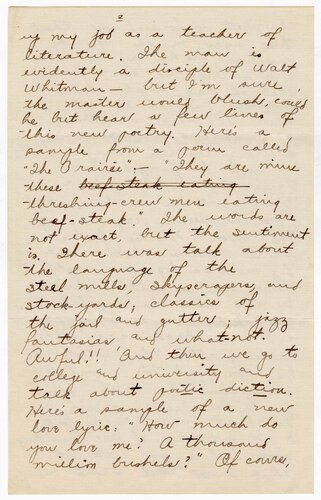 2
up my job as a teacher of
literature. The man is
evidently a disciple of Walt
Whitman — but I'm sure,
the master would blush, could
he but hear a few lines of
this new poetry. Here's a
sample from a poem called
"The Prairie" — "They are mine
these beef-steak eating
threshing-crew men eating
beef-steak." The words are
not exact, but the sentiment
is. There was talk about
the language of the
steel mills, skyscrapers, and
stock-yards; classics of
the jail and gutter; jazz
fantasias, and what-not.
Awful!! And then we go to
college and university and
talk about poetic diction.
Here's a sample of a new
love lyric: "How much do
you love me? A thousand
million bushels?" Of course,